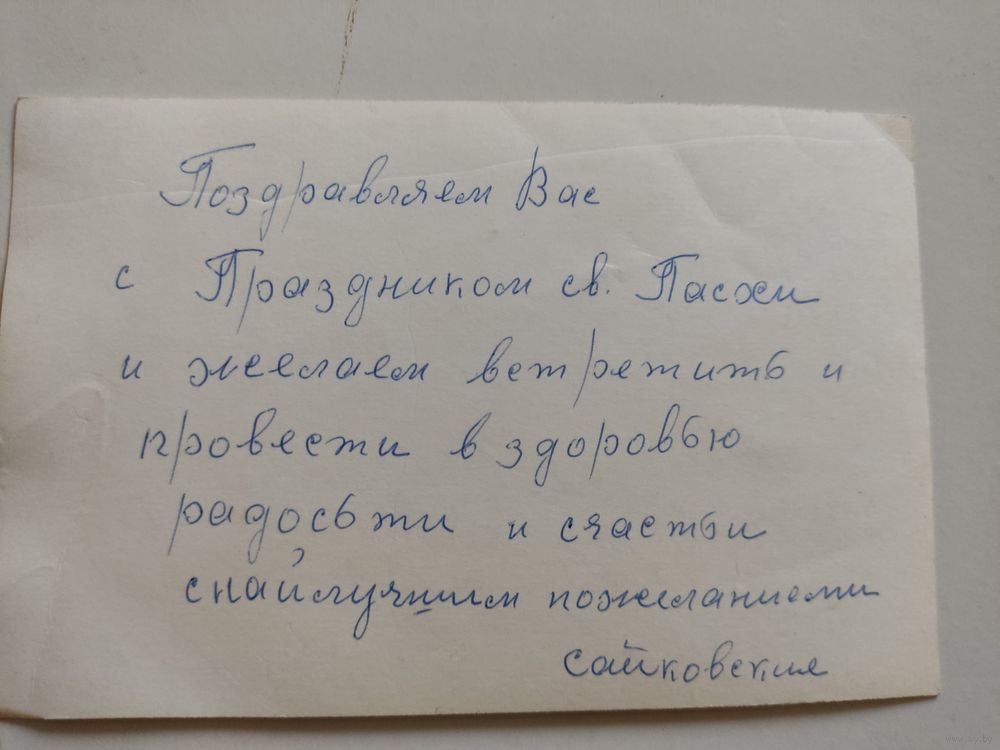 Поздравляем Вас
с Праздником св. Пасхи
и желаем ветретить и
провести в здоровью
радосьти и счастьи
с найлучшим пожеланиеми
Сайковские